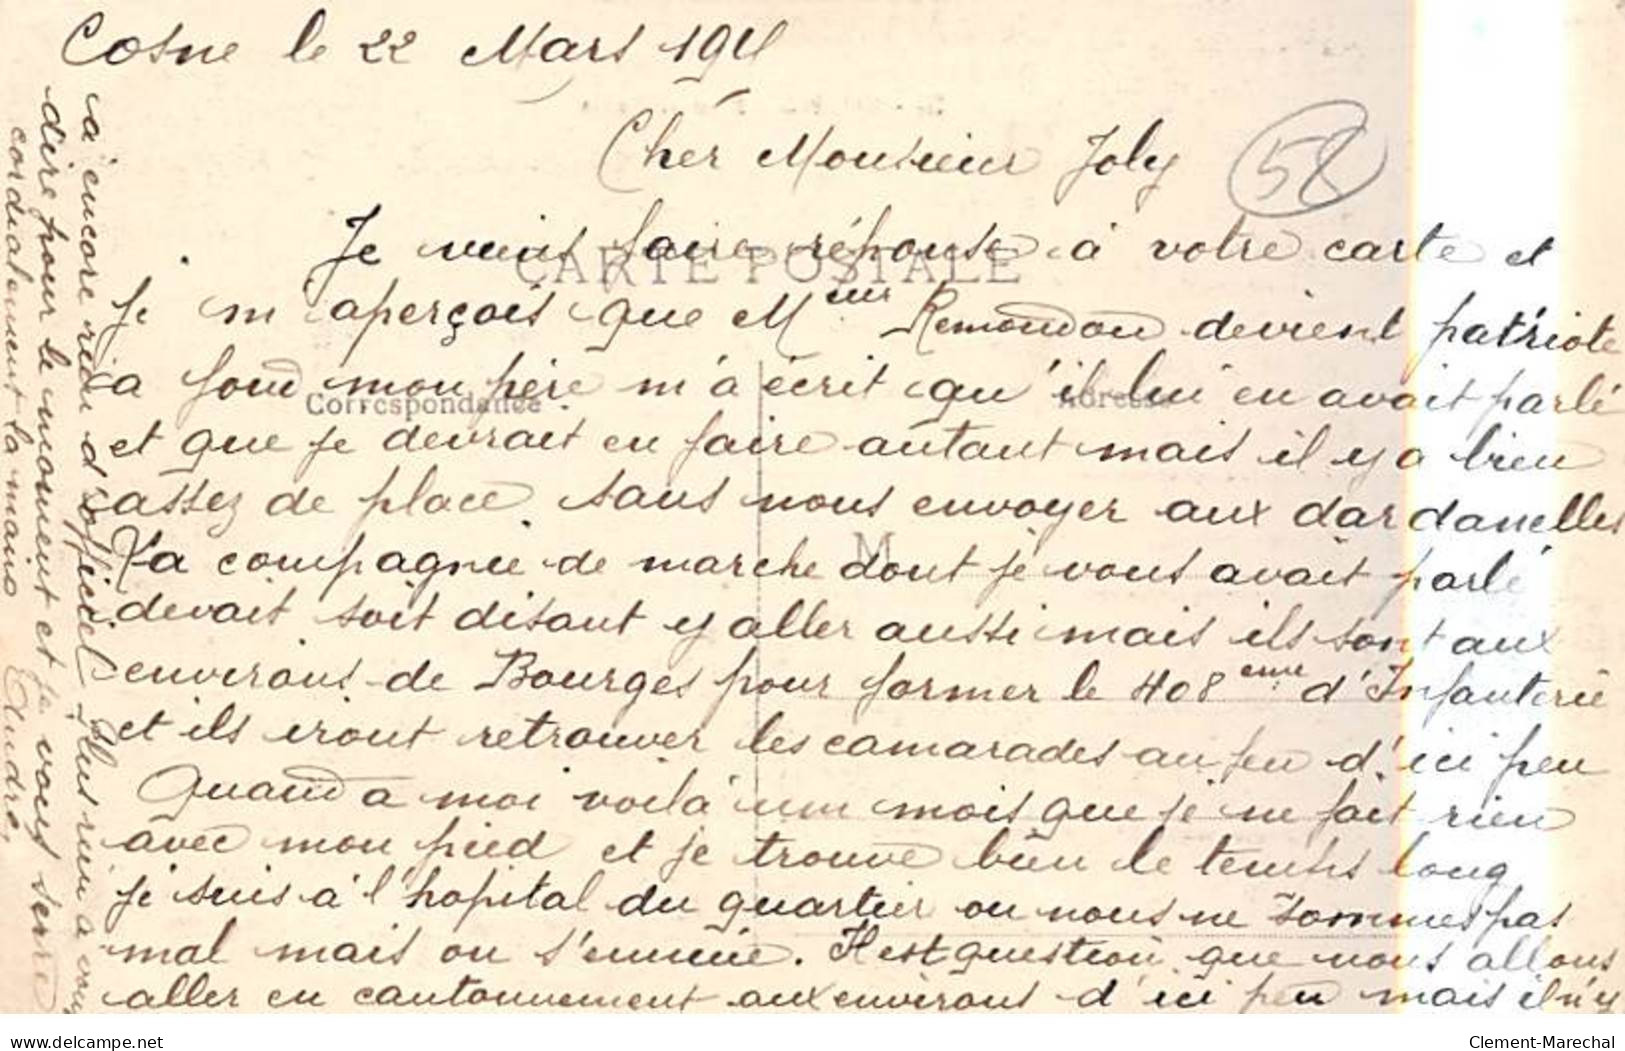 Cosne le 22 Mars 191
Cher Monsieur Joly
58
CARTE POSTALE
Je viens faire réponse à votre carte et
Je m'aperçois que Msieur Remondon devient patriote
a fond mon père m'a écrit qu'il lui en avait parlé
Correspondance
Adresse
et que je devrait en faire autant mais il y a bien
assez de place sans nous envoyer aux dardanelles
M
La compagnie de marche dont je vous avait parlé
devait soit disant y aller aussi mais ils sont aux
environs de Bourges pour former le 408eme d'Infanterie
et ils iront retrouver les camarades au feu d'ici peu
Quand a moi voilà un mois que je ne fait rien
avec mon pied et je trouve bien le temps long
je suis à l'hopital du quartier ou nous ne sommes pas
mal mais ou s'ennuie. Il est question que nous allons
aller en cantonnement aux environs d'ici peu mais il n'y
a encore rien d'officiel. Plus rien a vous
dire pour le moment et je vous serre
cordialement la main André.
delcampe.net
Clement-Marechal